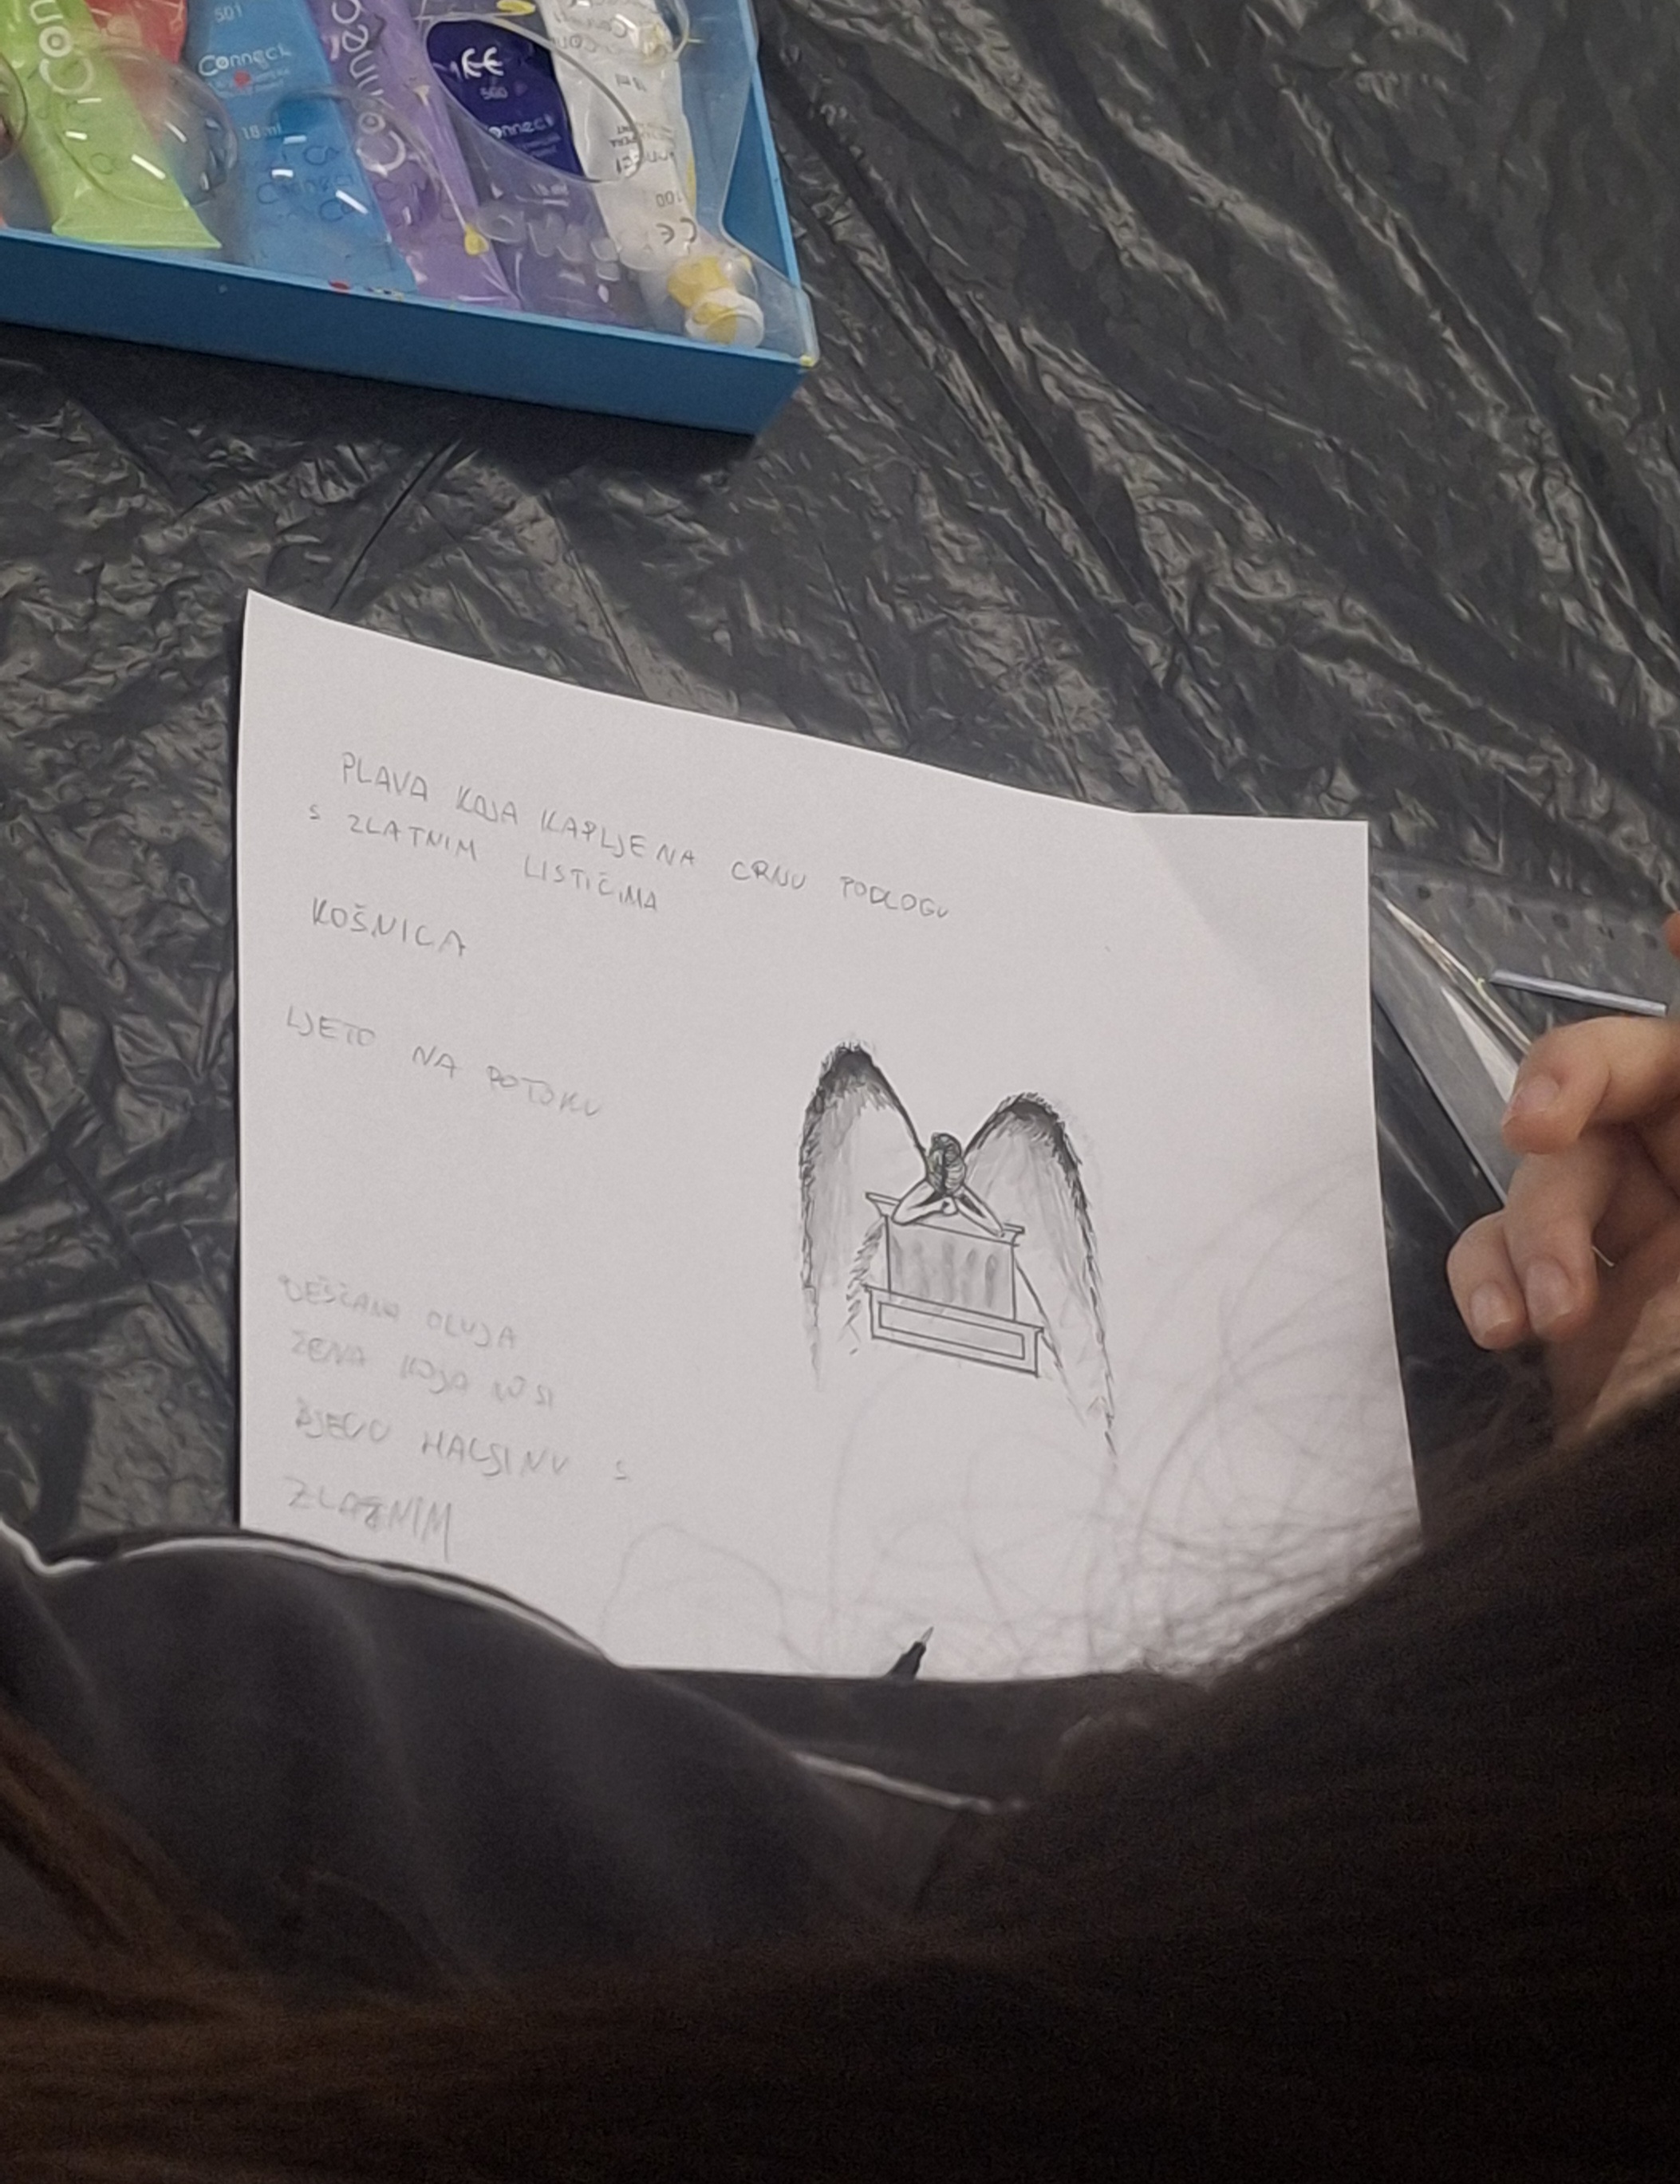 501
Connect
18 ml
CE
500
onnect
100
CE
PLAVA KOJA KAPLJE NA CRNU PODLOGU
S ZLATNIM LISTIĆIMA
KOŠNICA
LJETO NA POTOKU
PJEŠČANA OLUJA
ŽENA KOJA NOSI
BJELU HALJINU S
ZLATNIM